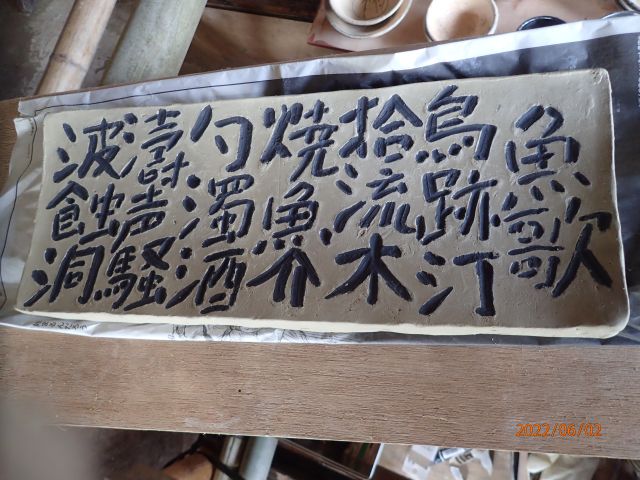 魚歌
鳥跡汀
拾流木
焼魚介
勺濁酒
濤声騒
波蝕洞
2022/06/02